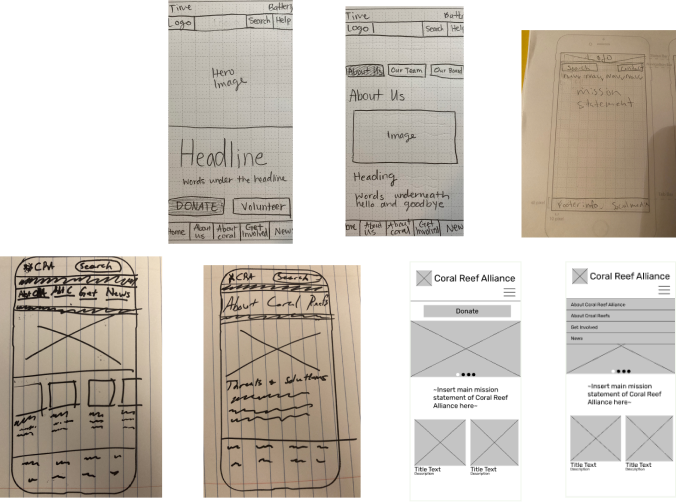 Time Battery
Logo Search Help
Hero
Image
Headline
words under the headline
DONATE Volunteer
Home About Us About coral Get Involved News
Time
Logo Search Help
About Us Our Team Our Board
About Us
Image
Heading
words underneath
hello and goodbye
About Us About coral Get Involved New
Logo
Search Contact
mission
statement
Footer info
CRA Search
Get News
CRA Search
About Coral Reefs
Threats & Solutions
Coral Reef Alliance
Donate
~Insert main mission
statement of Coral Reef
Alliance here~
Title Text Title Text
Description Description
Coral Reef Alliance
About Coral Reef Alliance
About Coral Reefs
Get Involved
News
~Insert main mission
statement of Coral Reef
Alliance here~
Title Text Title Text
Description Description